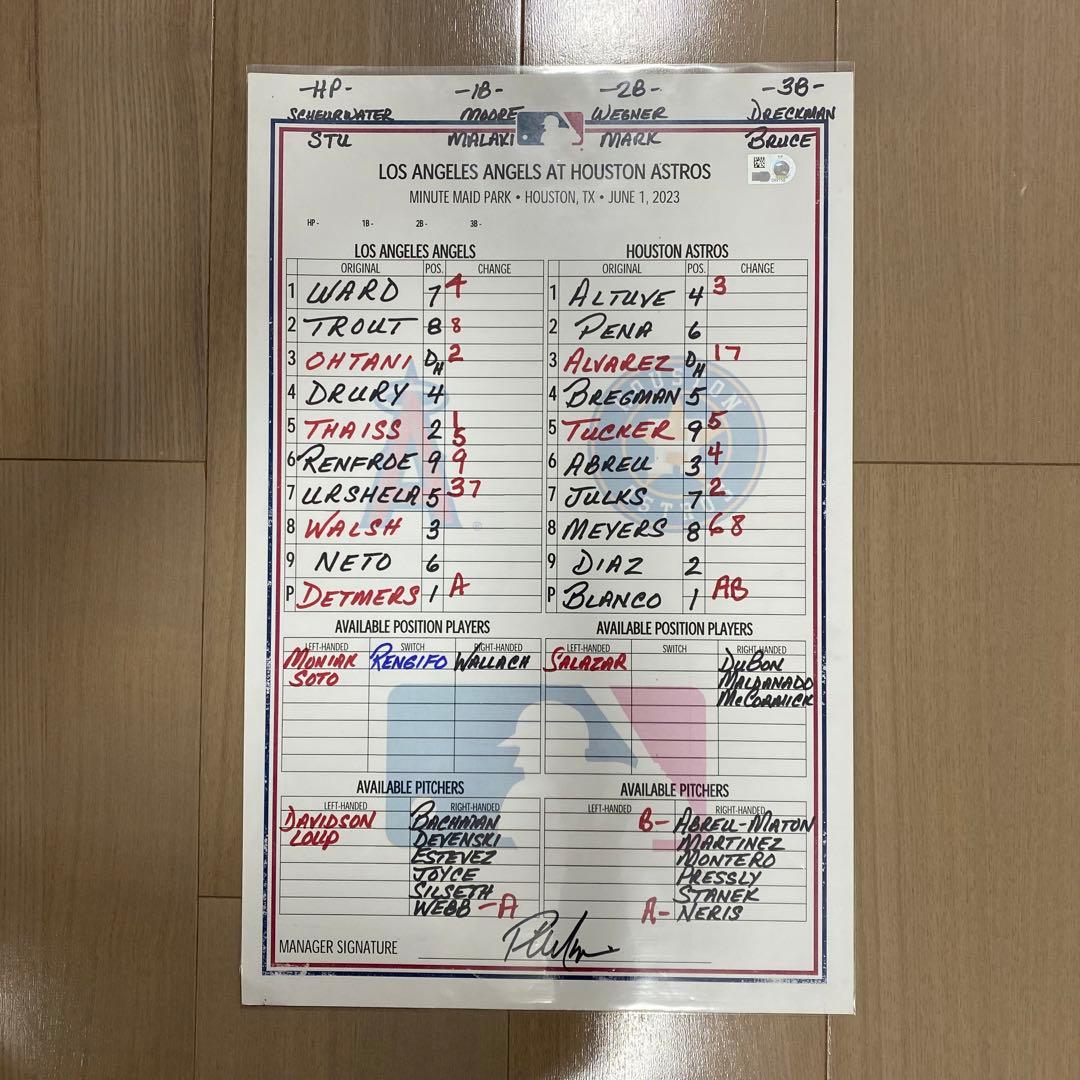 -HP- -1B- -2B- -3B-
SCHEURWATER MOORE WEGNER DRECKMAN
STU MALAKI MARK BRUCE
LOS ANGELES ANGELS AT HOUSTON ASTROS
MINUTE MAID PARK • HOUSTON, TX • JUNE 1, 2023
HP - 1B - 2B - 3B -
LOS ANGELES ANGELS
ORIGINAL POS. CHANGE
1 WARD 7 4
2 TROUT 8 8
3 OHTANI DH 2
4 DRURY 4
5 THAISS 2 1 5
6 RENFROE 9 9
7 URSHELA 5 37
8 WALSH 3
9 NETO 6
P DETMERS 1 A
HOUSTON ASTROS
ORIGINAL POS. CHANGE
1 ALTUVE 4 3
2 PENA 6
3 ALVAREZ DH 17
4 BREGMAN 5
5 TUCKER 9 5
6 ABREU 3 4
7 JULKS 7 2
8 MEYERS 8 68
9 DIAZ 2
P BLANCO 1 AB
AVAILABLE POSITION PLAYERS
LEFT-HANDED SWITCH RIGHT-HANDED
MONIAK RENGIFO WALLACH
SOTO
AVAILABLE POSITION PLAYERS
LEFT-HANDED SWITCH RIGHT-HANDED
SALAZAR DUBON
MALDANADO
MCCORMICK
AVAILABLE PITCHERS
LEFT-HANDED RIGHT-HANDED
DAVIDSON BACHMAN
LOUP DEVENSKI
ESTEVEZ
JOYCE
SILSETH
WEBB -A
AVAILABLE PITCHERS
LEFT-HANDED RIGHT-HANDED
B- ABREU-MATON
MARTINEZ
MONTERO
PRESSLY
STANEK
A- NERIS
MANAGER SIGNATURE